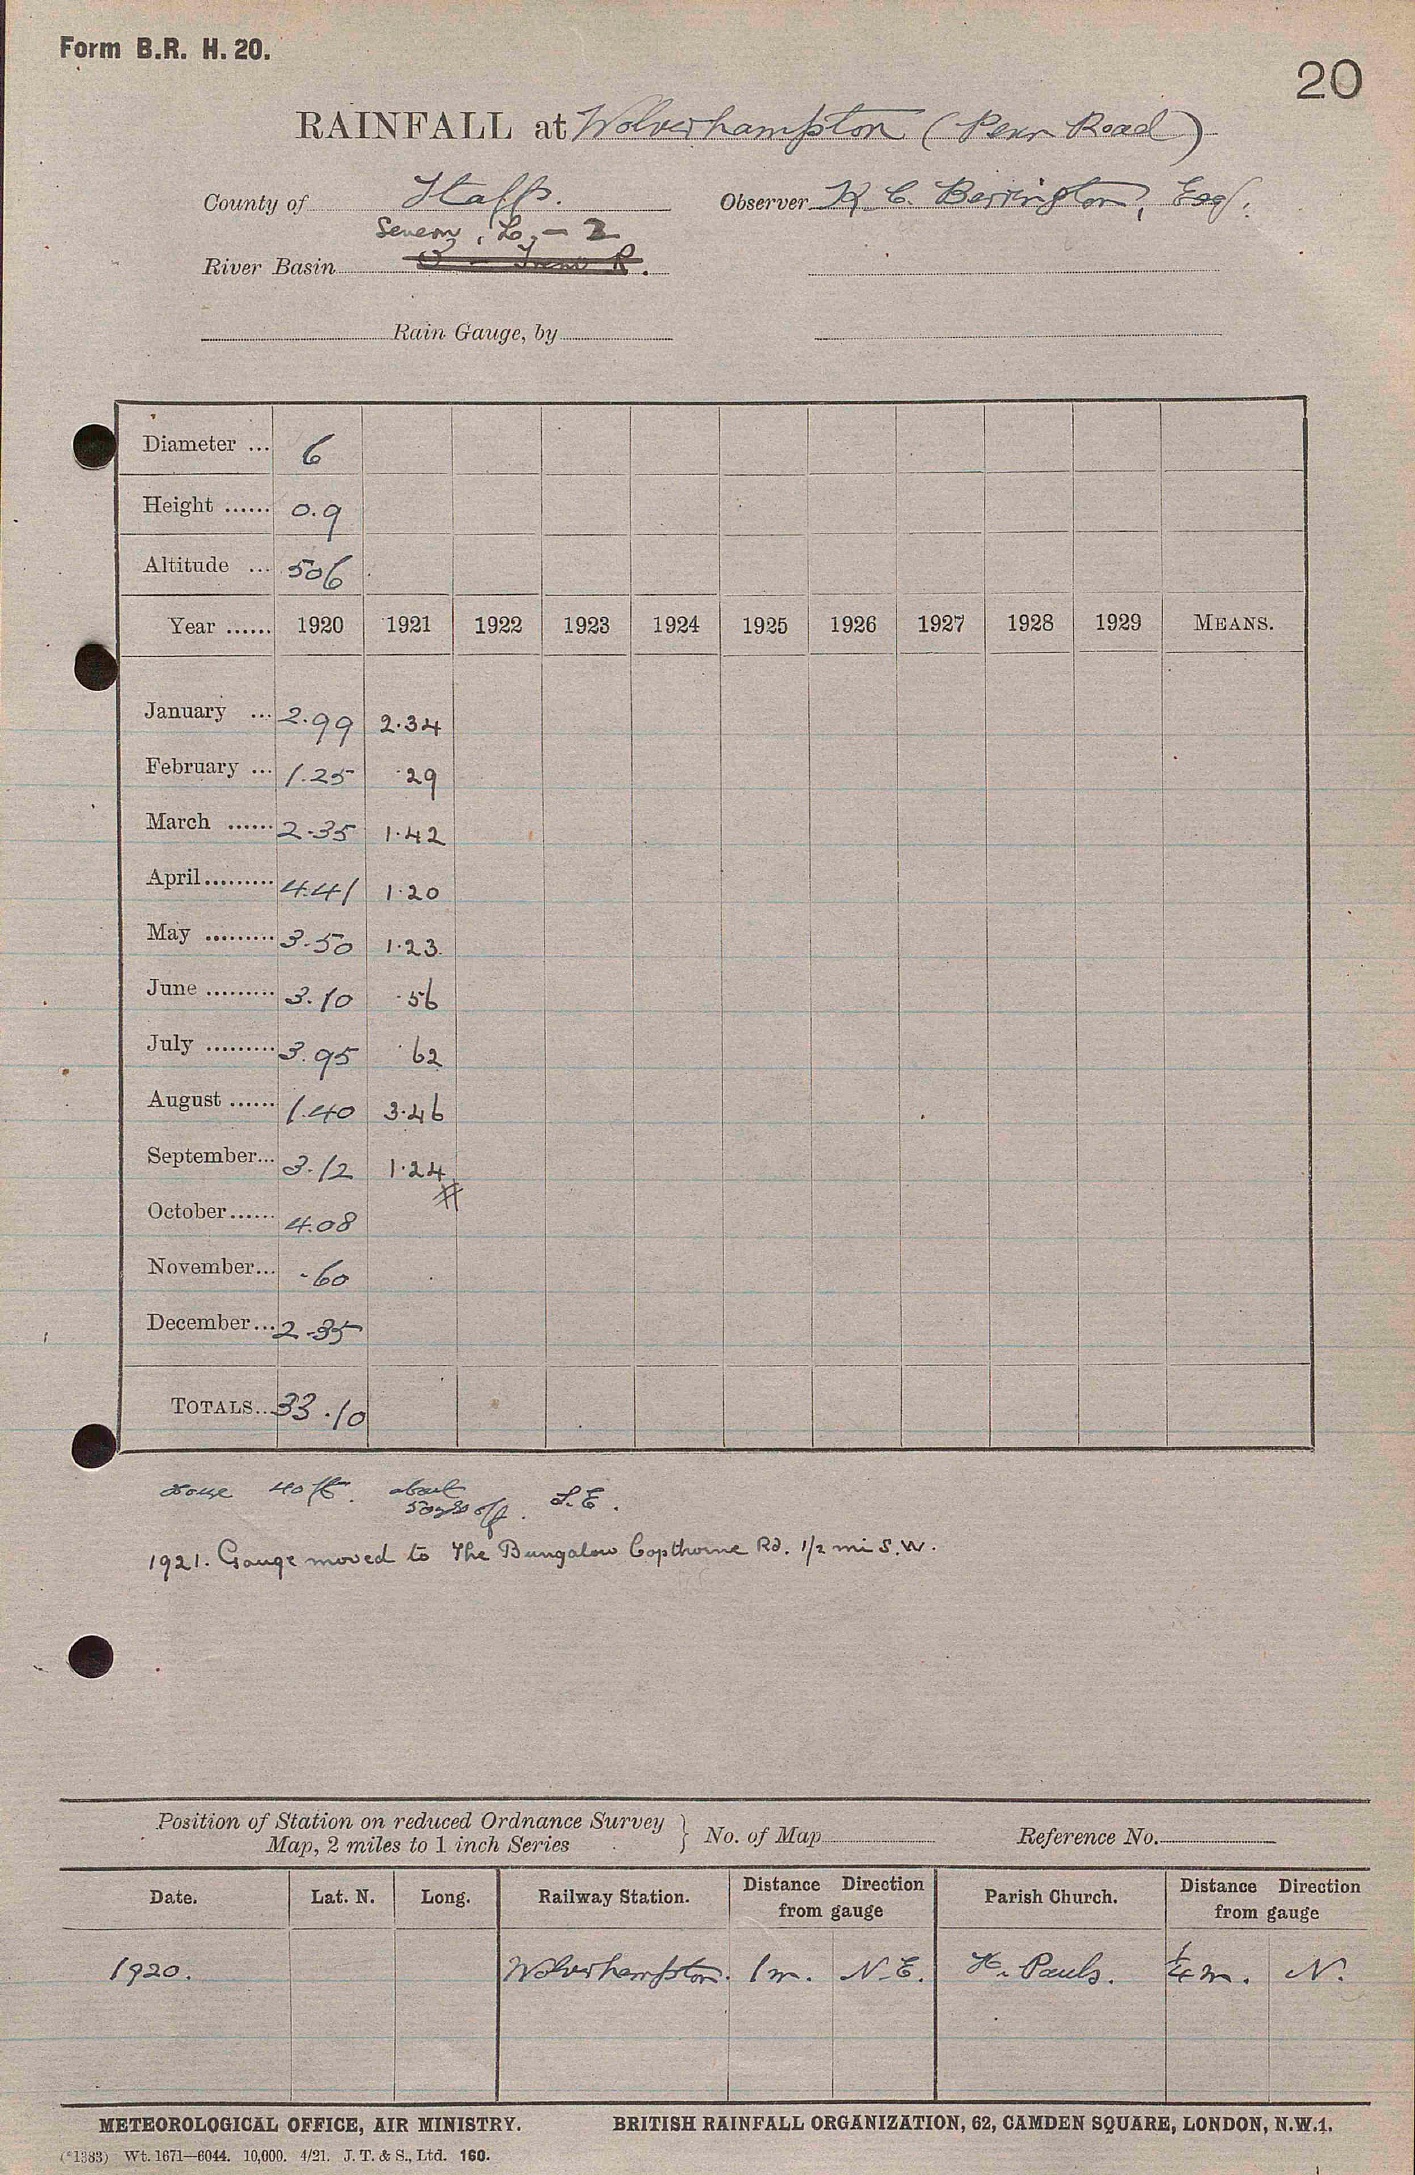 Form B.R. H. 20.
20
RAINFALL at Wolverhampton (Penn Road)
County of Staffs. Observer K. C. Berrington, Esq.
Severn, L, - 2
River Basin
Rain Gauge, by
Diameter ... 6
Height ...... 0.9
Altitude ... 506
Year ...... 1920 1921 1922 1923 1924 1925 1926 1927 1928 1929 MEANS.
January ... 2.99 2.34
February ... 1.25 .29
March ...... 2.35 1.42
April ......... 4.41 1.20
May ......... 3.50 1.23
June ......... 3.10 .56
July ......... 3.95 .62
August ...... 1.40 3.46
September... 3.12 1.24
#
October ...... 4.08
November... .60
December... 2.35
TOTALS... 33.10
House 40 ft. about 50 yds off. S.E.
1921. Gauge moved to The Bungalow Copthorne Rd. 1/2 mi S.W.
Position of Station on reduced Ordnance Survey
Map, 2 miles to 1 inch Series } No. of Map Reference No.
Date. Lat. N. Long. Railway Station. Distance Direction from gauge Parish Church. Distance Direction from gauge
1920. Wolverhampton. 1 m. N.E. Pauls. 1/4 m. N.
METEOROLOGICAL OFFICE, AIR MINISTRY. BRITISH RAINFALL ORGANIZATION, 62, CAMDEN SQUARE, LONDON, N.W.1.
(*1383) Wt. 1671—6044. 10,000. 4/21. J. T. & S., Ltd. 160.